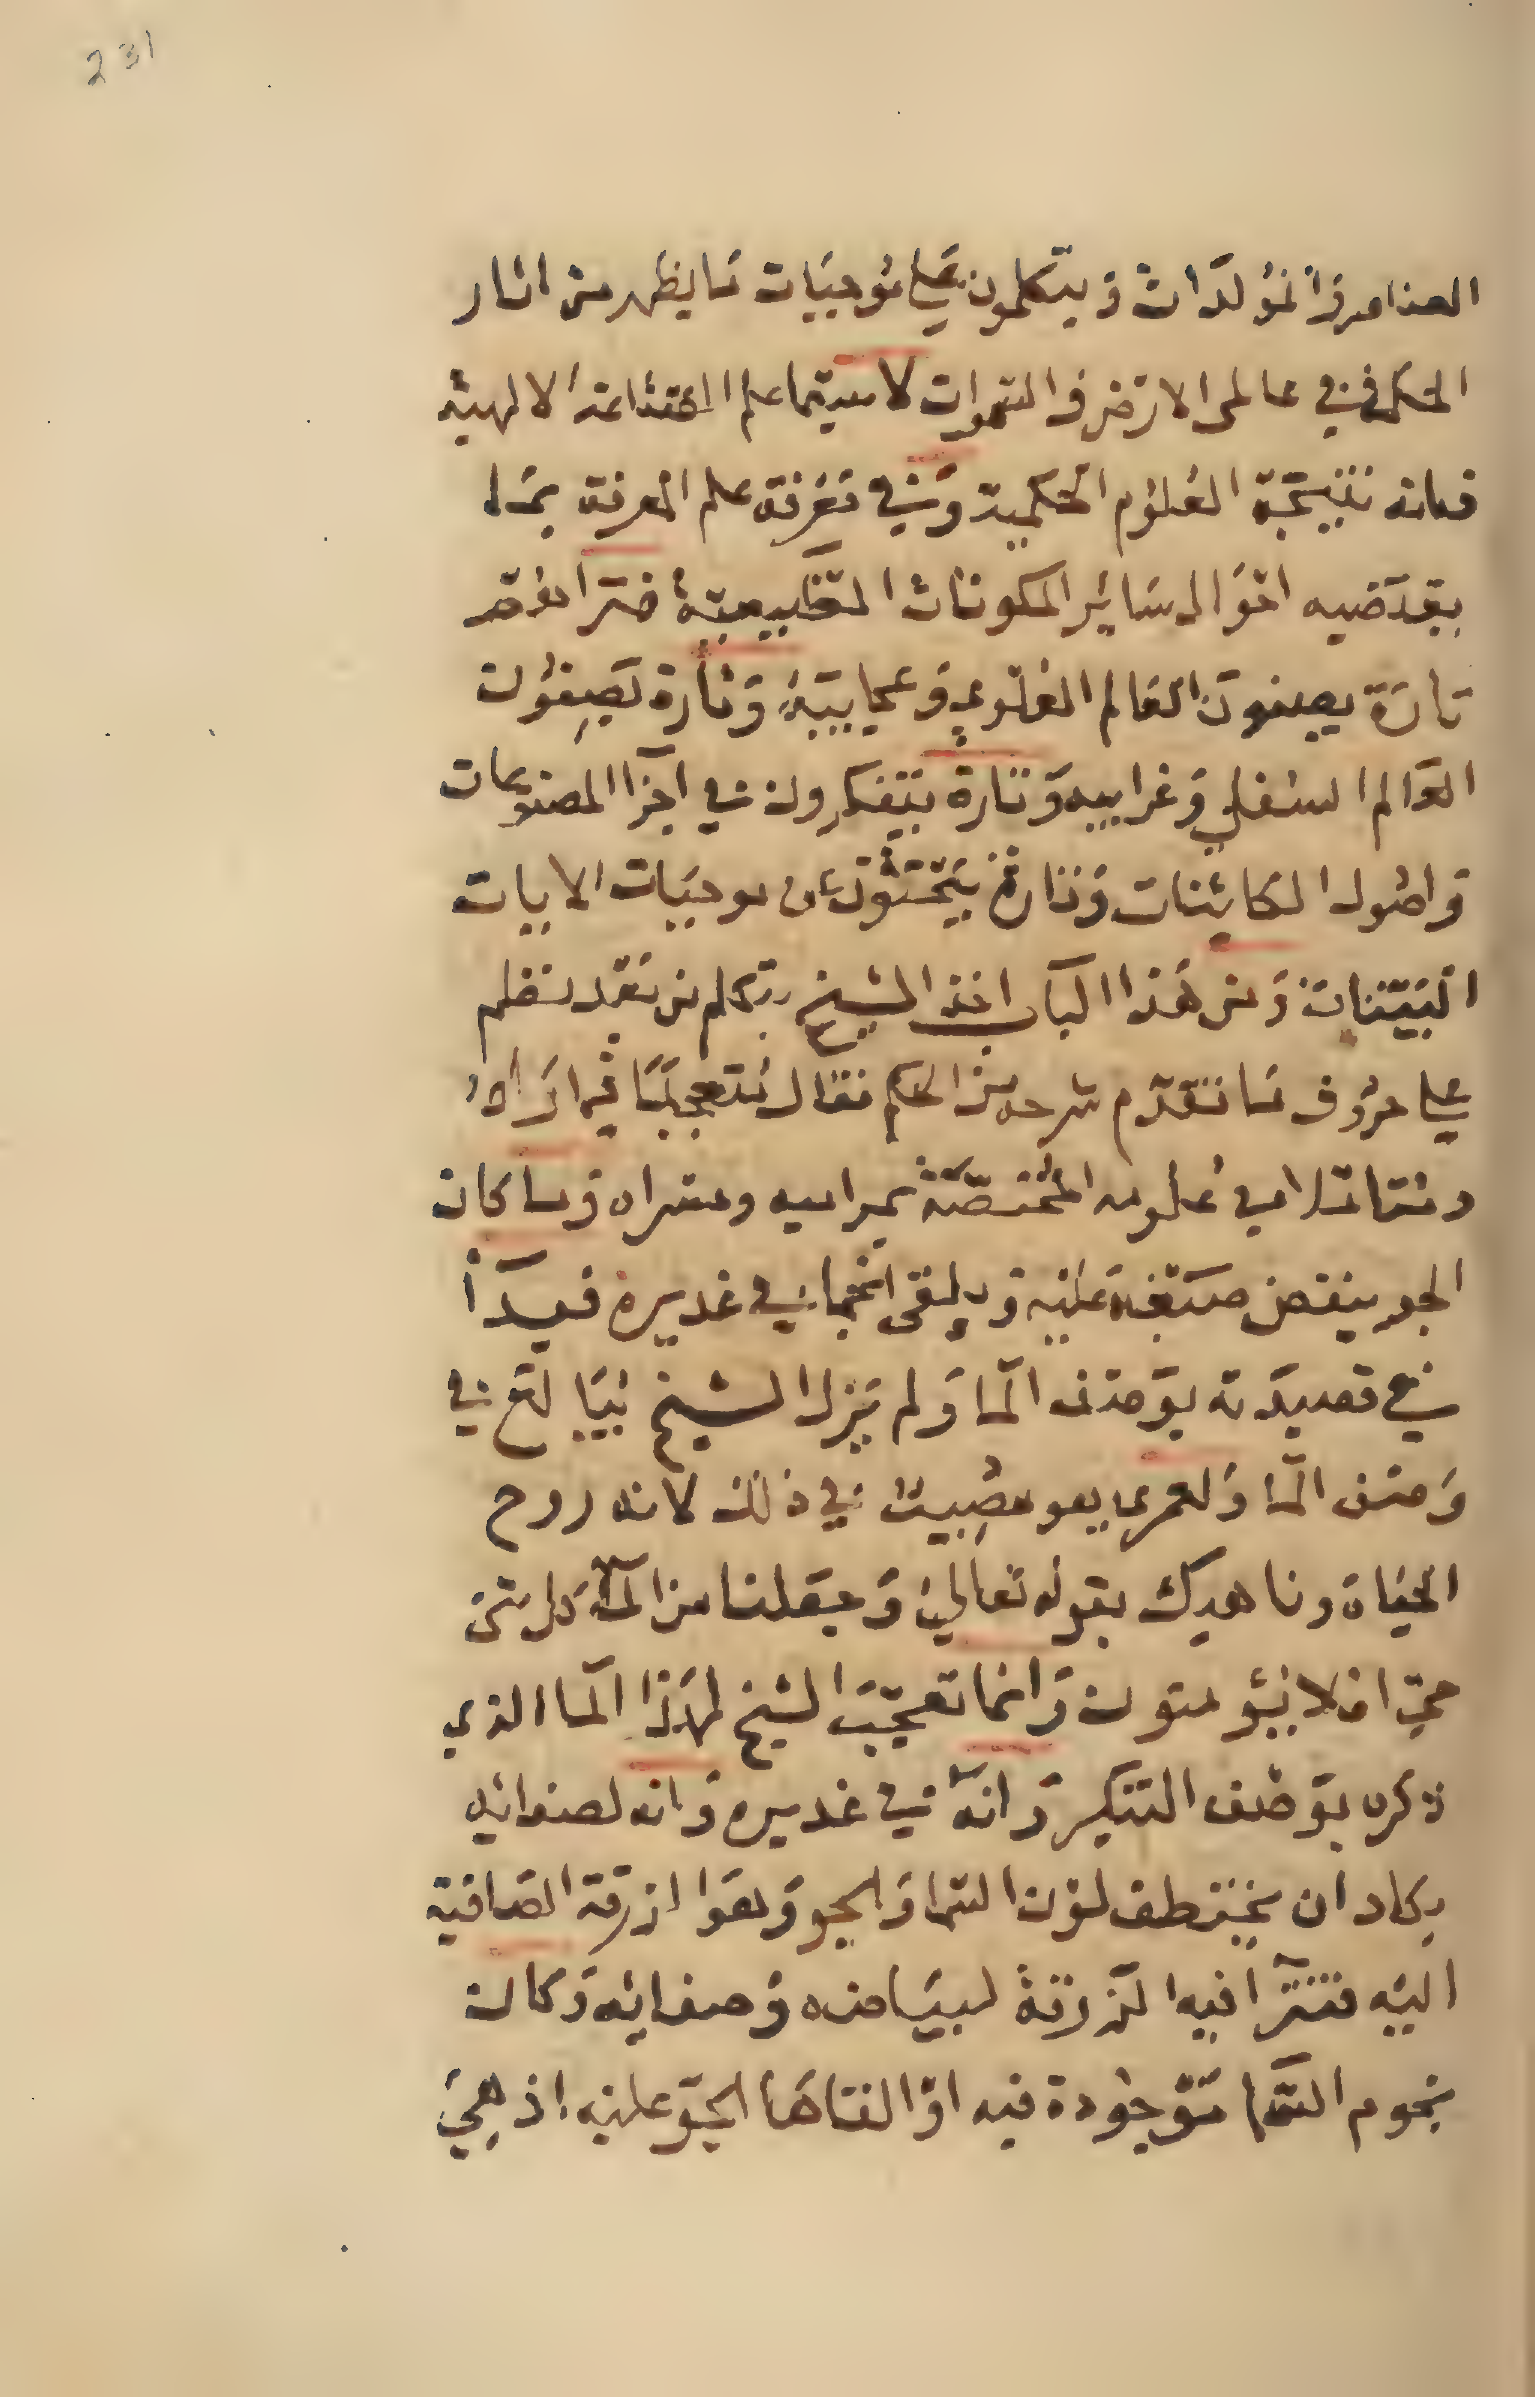 231
العناصر والمؤلدات ويتكلمون على موجبات ما يظهر من اثار
الحكم في عالمى الارض والسموات لا سيما علم الصناعة الالهية
فانه نتيجة العلوم الحكمية وفي معرفته علم المعرفة بما
بعد فيه احوال ساير المكونات الطبيعية فتراهم
تارة يصفون العالم العلوي وعجايبه وتارة يصفون
العالم السفلي وغرايبه وتارة يتفكرون في اجزا المصنوعات
واصول الكاينات وتارة يبحثون عن موجبات الايات
البينات ومن هذا الباب اخذ الشيخ يتكلم من بعد نظم
على حروف ما تقدم شرحه من الحكم فقال متعجبا فيما اراه
ومتاملا في علومه المختصة وما كان
الجو ينفض صبغه عليه ويلقى انجما في غديره فبدأ
في قصيدته بوصف الما ولم يزل الشيخ يبالغ في
وصف الما ولعمرى هو مصيب في ذلك لانه روح
الحياة وناهيك بقوله تعالى وجعلنا من الماء كل شى
حي افلا يؤمنون وانما تعجب الشيخ لهذا الما الذي
ذكره بوصف التنكير وانه في غديره وانه لصفائه
يكاد ان يختطف لون السما والجو وهوا ازرقه الصافية
اليه فتترا فيه الزرقة لبياضه وصفائه وكان
نجوم السما موجودة فيه او القاها الجو عليه اذ هي